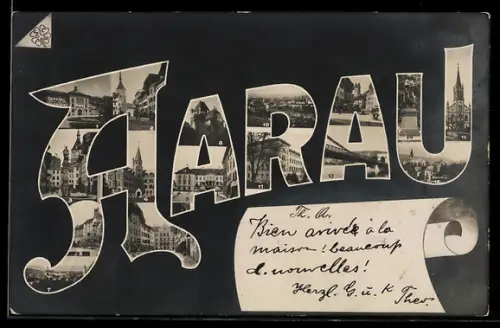 AARAU
Th. A.
Bien arrivée à la
maison! beaucoup
d. nouvelles!
Herzl. G. u. K Theo.